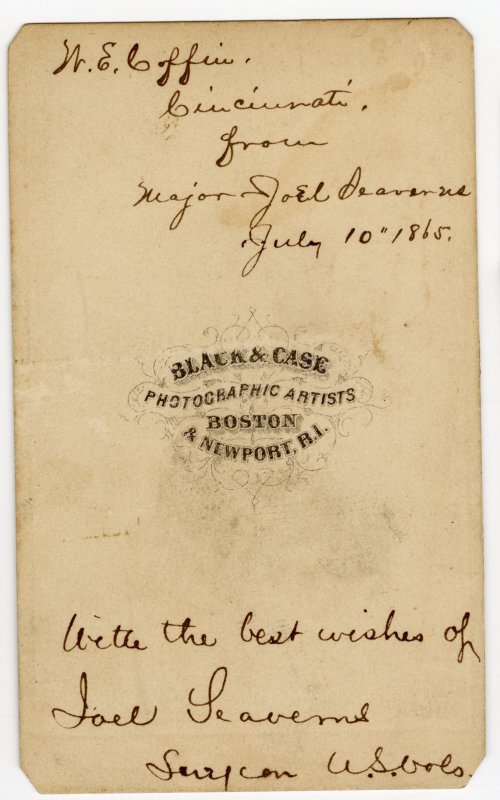 W. E. Coffin.
Cincinnati.
from
Major Joel Seaverns
July 10" 1865.
BLACK & CASE
PHOTOGRAPHIC ARTISTS
BOSTON
& NEWPORT, R.I.
With the best wishes of
Joel Seaverns
Surgeon U.S. Vols.